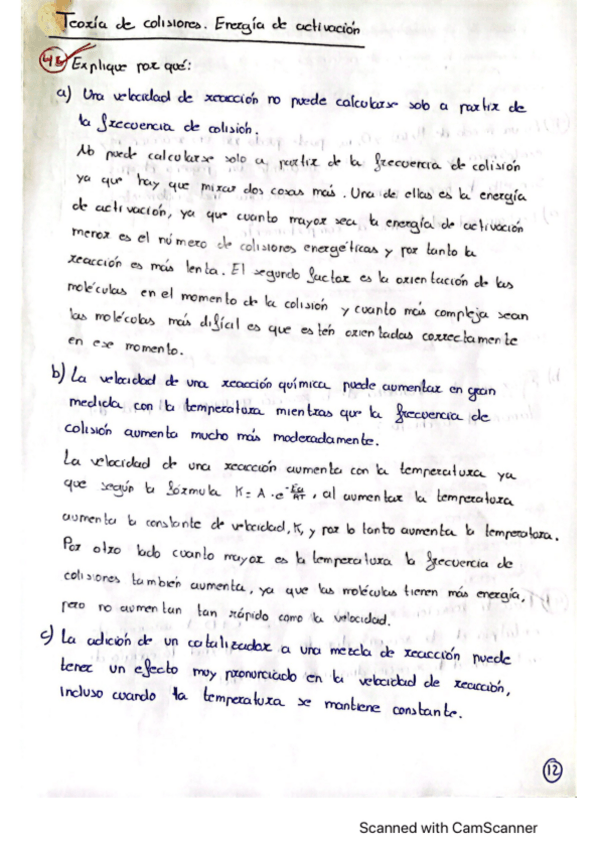 Teoría de colisiones. Energía de activación
48 Explique por qué:
a) Una velocidad de reacción no puede calcularse solo a partir de
la frecuencia de colisión.
No puede calcularse solo a partir de la frecuencia de colisión
ya que hay que mirar dos cosas más. Una de ellas es la energía
de activación, ya que cuanto mayor sea la energía de activación
menor es el número de colisiones energéticas y por tanto la
reacción es más lenta. El segundo factor es la orientación de las
moléculas en el momento de la colisión y cuanto más compleja sean
las moléculas más difícil es que estén orientadas correctamente
en ese momento.
b) La velocidad de una reacción química puede aumentar en gran
medida con la temperatura mientras que la frecuencia de
colisión aumenta mucho más moderadamente.
La velocidad de una reacción aumenta con la temperatura ya
que según la fórmula K = A · e^-Ea/RT, al aumentar la temperatura
aumenta la constante de velocidad, K, y por lo tanto aumenta la temperatura.
Por otro lado cuanto mayor es la temperatura la frecuencia de
colisiones también aumenta, ya que las moléculas tienen más energía,
pero no aumentan tan rápido como la velocidad.
c) La adición de un catalizador a una mezcla de reacción puede
tener un efecto muy pronunciado en la velocidad de reacción,
incluso cuando la temperatura se mantiene constante.
12
Scanned with CamScanner